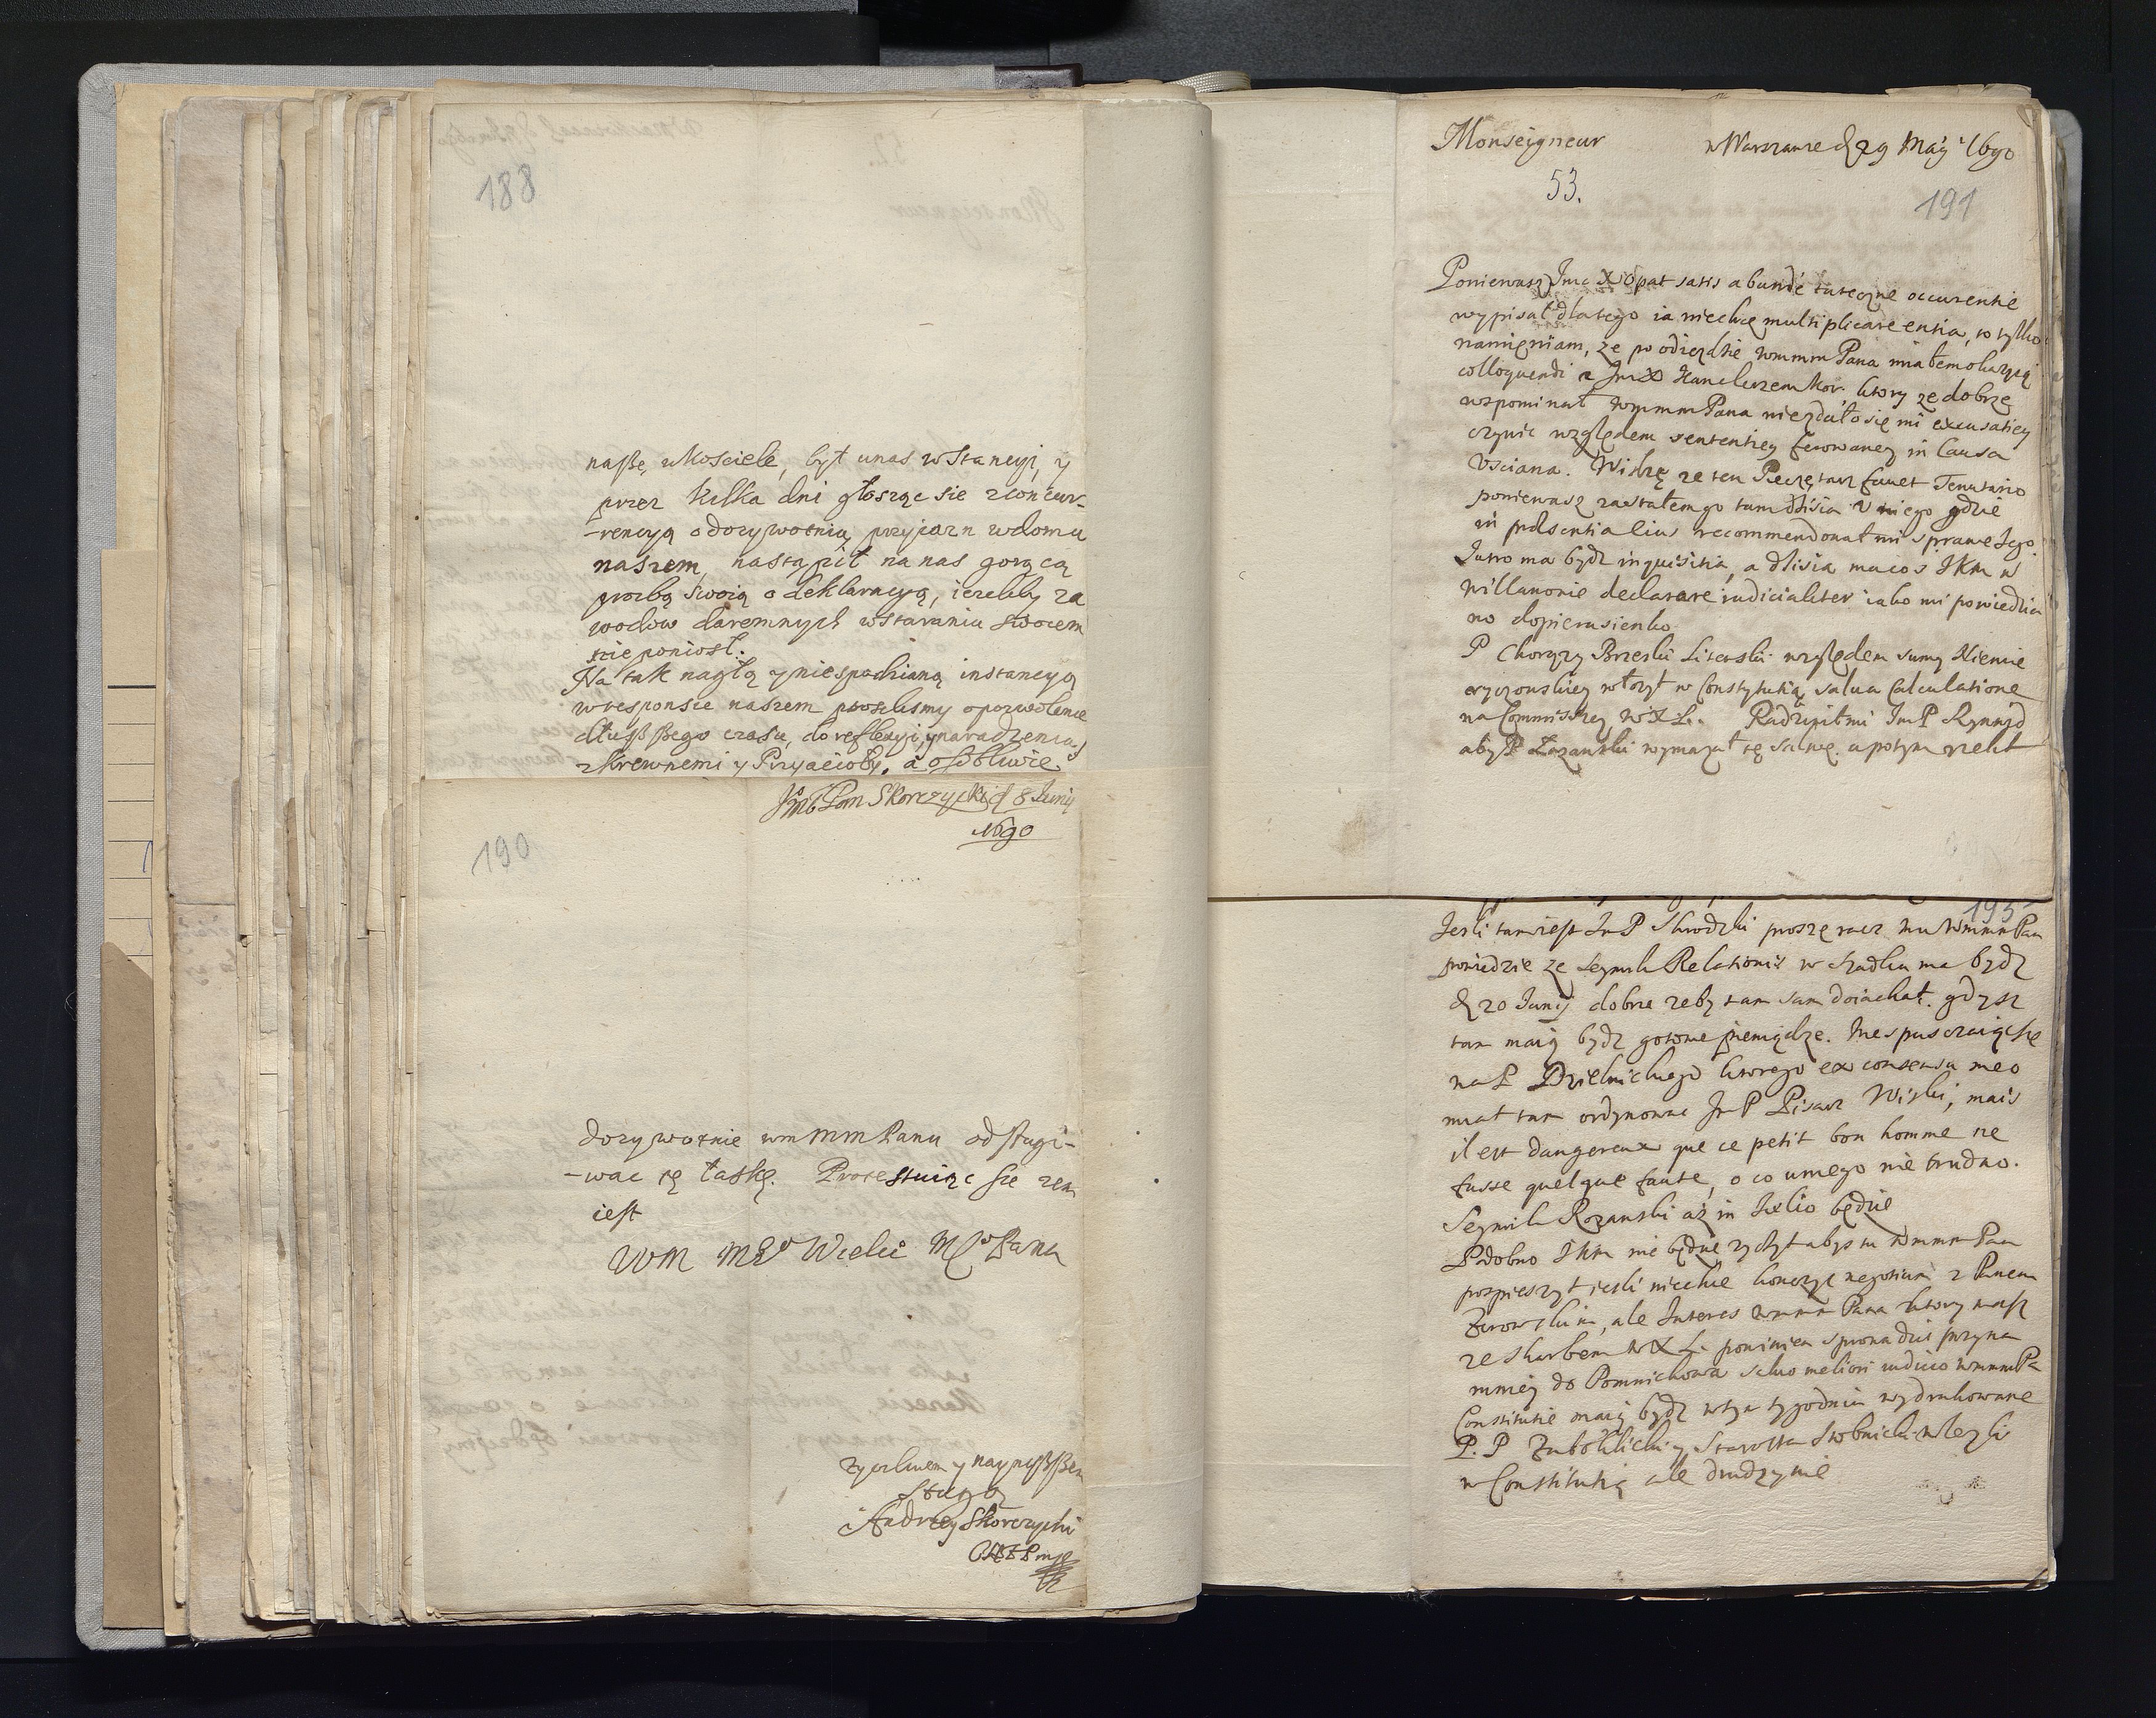 188
naßę, w Kosciele, był unas wStancyi, y
przez kilka dni głosząc sie z concur-
-rencyą o dozywotnią przyiazn wdomu
naszem, nastąpił na nas gorącą
prozbą swoią o deklaracyą, iezeliby za
wodow daremnych wstaraniu swoiem
nie poniosł.
Na tak nagłą y niespodzianą instancyą
w responsie naszem prosilismy o pozwolenie
dłużßego czasu, do reflexyi, y naradzenia
z Krewnemi y Przyacioły, a osobliwie
Jmć Pan Skorczycki d 8 Junij
1690
190
dozywotnie wmmm Panu odsługi-
-wac tę łaskę. Protestuiąc sie zem
iest
WM MP Wielce Mo Pana
zyczliwem y naynißßem
sługą
Andrzey Skorczycki
Monseigneur w Warszawie d 29 Maÿ 1690
53.
191
Poniewasz Jmc X Opat satis abunde tuteczne occurentie
wypisał dlatego ia niechcę multiplicare entia, to tylko
namięniam, ze po odiezdzie wmmm Pana miałem okazyą
colloquendi z Jm X Kanclerzem Kor. ktory ze dobrze
wspominał wmmm Pana niezdało się mi excusatiey
czynic względem sententiey ferowaney in Causa
Usciana. Widzę ze ten Pieczętarz fauet Tenutario
poniewasz zastałem go tam dzisia u niego gdzie
in praesentia eius recommendował mi sprawę Jego.
Jutro ma bydz inquisitia, a dzisia macos JKM w
willanowie declarare iudicialiter iako mi powiedzia
no dopierusienko
P Chorązy Brzeski Litewski względem sumy Niemie
ryczowskiey włozył w Constytutią salua Calculatione
na Commissiey W X L. Radzililtmi Jm P Rynwid
aby P Łazanski wymazał tę salwę. a potym rzekł
195
Jesli tam iest Jm P Skrodzki proszę racz mu Wmmm Pan
powiedziec ze Seymik Relationis w Szadku ma bydz
d 20 Junij dobrze zeby tam sam doiachał. gdysz
tam maią bydz gotowe pieniądze. Nie spusczaiąc się
na P Dzielnickiego ktorego ex consensu meo
miał tam ordynowac Jm P Pisarz Wiski, mais
il est dangereux que ce petit bon homme ne
fusse quelque faute, o co u niego nie trudno.
Seymik Rozanski az in Julio będzie
Podobno JKM nie będzie zyczył abys tu Wmmm Pan
pospieszył iesli niechce konczyc negotium z Panem
Zerowskim, ale Interes wmmm Pana ktory masz
ze skarbem W X L. powinien sprowadzic przyna
mniey do Pomnichowa saluo meliori iudicio wmmm Pa
Constitutie maią bydz w tym tygodniu wydrukowane
P. P Zaboklicki y Starosta Stobnicki wlezli
w Constitutią ale drudzy nie